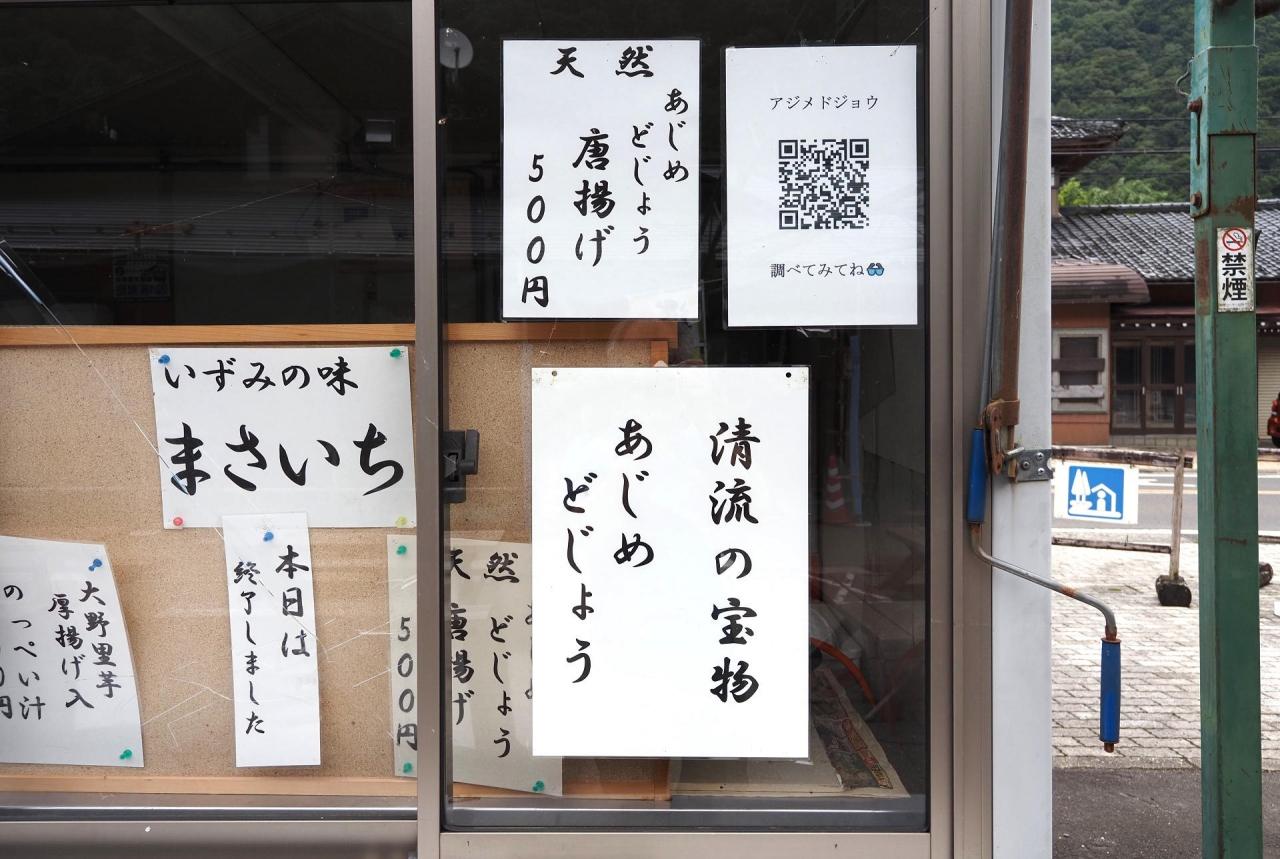 天然
あじめ
どじょう
唐揚げ
500円
アジメドジョウ
調べてみてね
清流の宝物
あじめ
どじょう
いずみの味
まさいち
本日は
終了しました
大野里芋
厚揚げ入
のっぺい汁
円
天然
どじょう
唐揚げ
500円
禁煙